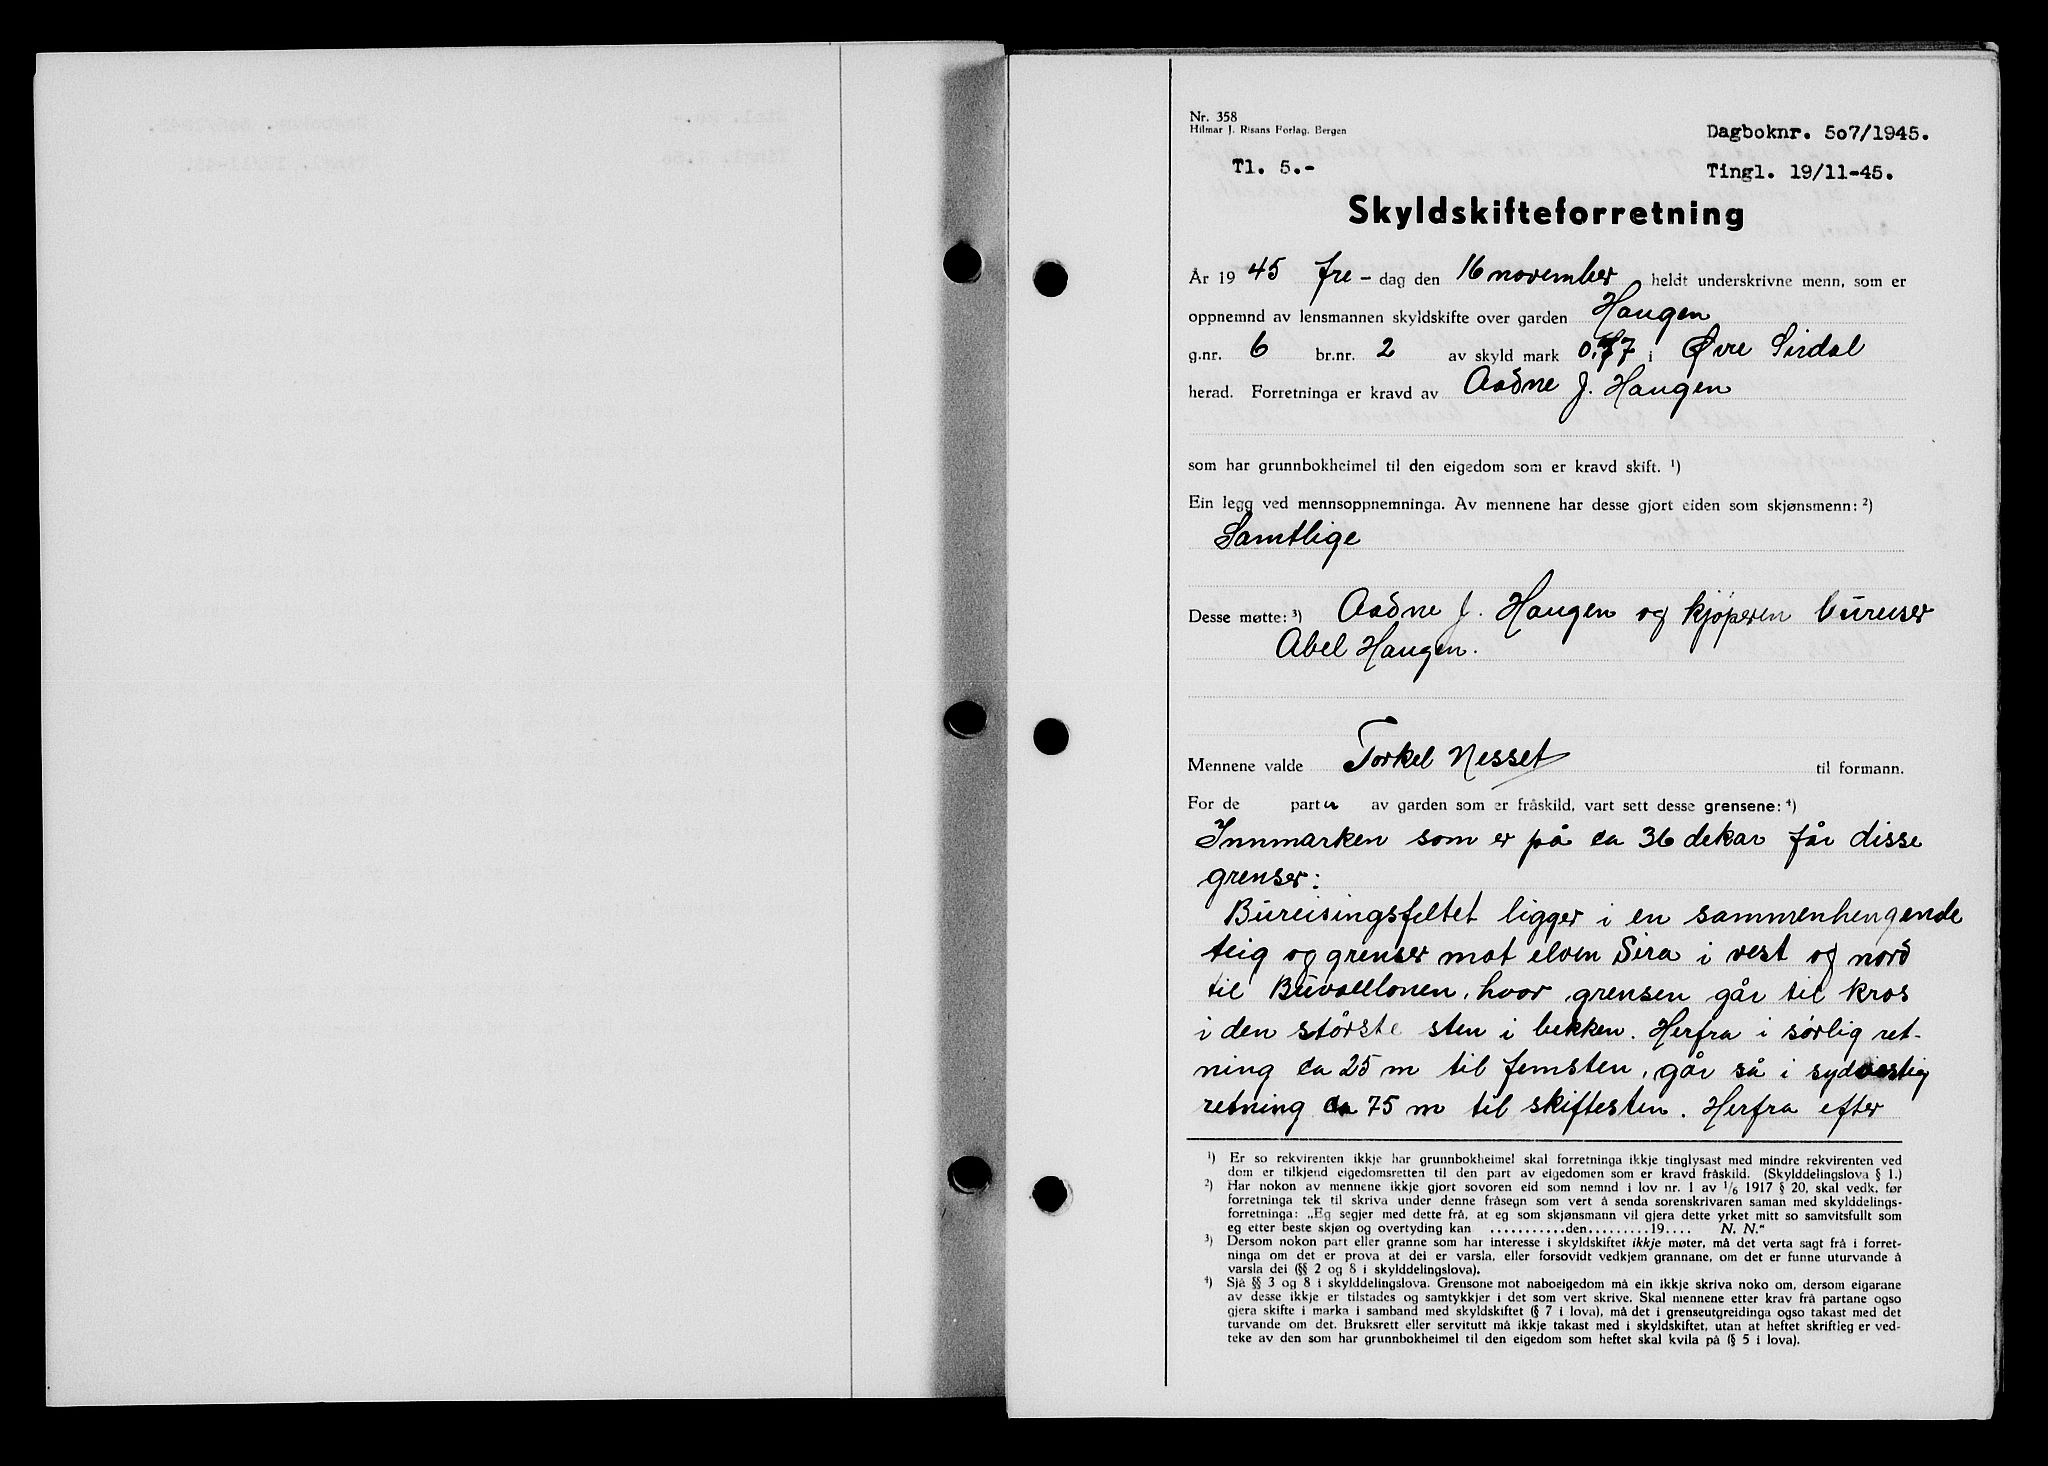 Nr. 358
Hilmar J. Risans Forlag, Bergen
Dagboknr. 507/1945.
Tl. 5.-
Tingl. 19/11-45.
Skyldskifteforretning
År 19 45 fre - dag den 16 november heldt underskrivne menn, som er
oppnemnd av lensmannen skyldskifte over garden Haugen
g.nr. 6 br.nr. 2 av skyld mark 0.77 i Øvre Sirdal
herad. Forretninga er kravd av Aadne J. Haugen
som har grunnbokheimel til den eigedom som er kravd skift. ¹)
Ein legg ved mennsoppnemninga. Av mennene har desse gjort eiden som skjønsmenn: ²)
Samtlige
Desse møtte: ³) Aadne J. Haugen og kjøperen bureiser
Abel Haugen.
Mennene valde Torkel Nesset til formann.
For de parter av garden som er fråskild, vart sett desse grensene: ⁴)
Innmarken som er på ca 36 dekar får disse
grenser:
Bureisingsfeltet ligger i en sammenhengende
teig og grenser mot elven Sira i vest og nord
til Buvollonen, hvor grensen går til kros
i den største sten i bekken. Herfra i sørlig ret-
ning ca 25 m til femsten, går så i sydvestlig
retning ca 75 m til skiftesten. Herfra efter
¹) Er so rekvirenten ikkje har grunnbokheimel skal forretninga ikkje tinglysast med mindre rekvirenten ved
dom er tilkjend eigedomsretten til den part av eigedomen som er kravd fråskild. (Skylddelingslova § 1.)
²) Har nokon av mennene ikkje gjort sovoren eid som nemnd i lov nr. 1 av 1/6 1917 § 20, skal vedk. før
forretninga tek til skriva under denne fråsegn som vert å senda sorenskrivaren saman med skylddelings-
forretninga: „Eg segjer med dette frå, at eg som skjønsmann vil gjera dette yrket mitt so samvitsfullt som
eg etter beste skjøn og overtyding kan ...........den.........19.... N. N."
³) Dersom nokon part eller granne som har interesse i skyldskiftet ikkje møter, må det verta sagt frå i forret-
ninga om det er prova at dei er varsla, eller forsovidt vedkjem grannane, om det er funne uturvande å
varsla dei (§§ 2 og 8 i skylddelingslova).
⁴) Sjå §§ 3 og 8 i skylddelingslova. Grensone mot naboeigedom må ein ikkje skriva noko om, dersom eigarane
av desse ikkje er tilstades og samtykkjer i det som vert skrive. Skal mennene etter krav frå partane ogso
gjera skifte i marka i samband med skyldskiftet (§ 7 i lova), må det i grenseutgreidinga ogso takast med det
turvande om det. Bruksrett eller servitutt må ikkje takast med i skyldskiftet, utan at heftet skriftleg er ved-
teke av den som har grunnbokheimel til den eigedom som heftet skal kvila på (§ 5 i lova).